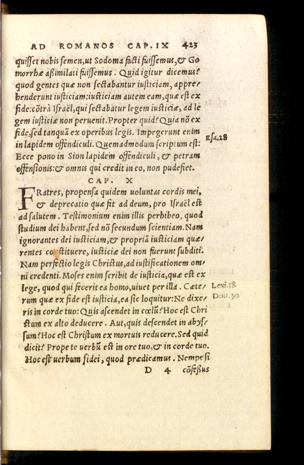 AD ROMANOS CAP. IX 423
quisset nobis semen, ut Sodoma facti fuissemus, & Go
morrhæ aßimilati fuissemus. Quid igitur dicemus?
quod gentes quæ non sectabantur iusticiam, appre
henderunt iusticiam: iusticiam autem eam, quæ est ex
fide: cōtrà Israël, qui sectabatur legem iusticiæ, ad le
gem iusticiæ non peruenit. Propter quid? Quia nō ex
fide, sed tanquā ex operibus legis. Impegerunt enim
in lapidem offendiculi. Quemadmodum scriptum est:
Esa.28
Ecce pono in Sion lapidem offendiculi, & petram
offensionis: & omnis qui credit in eo, non pudefiet.
CAP. X
FRatres, propensa quidem uoluntas cordis mei,
& deprecatio quæ fit ad deum, pro Israël est
ad salutem. Testimonium enim illis perhibeo, quod
studium dei habent, sed nō secundum scientiam. Nam
ignorantes dei iusticiam, & propriā iusticiam quæ/
rentes constituere, iusticiæ dei non fuerunt subditi.
Nam perfectio legis Christus, ad iustificationem om/
ni credenti. Moses enim scribit de iusticia, quæ est ex
lege, quod qui fecerit ea homo, uiuet per illa. Cæte/
Leui.18
rum quæ ex fide est iusticia, ea sic loquitur: Ne dixe/
Deu.30
ris in corde tuo: Quis ascendet in cœlū? Hoc est Chri
stum ex alto deducere. Aut, quis descendet in abys/
sum? Hoc est Christum ex mortuis reducere. Sed quid
dicit? Prope te uerbū est in ore tuo, & in corde tuo.
Hoc est uerbum fidei, quod prædicamus. Nempe si
D 4 cōfessus